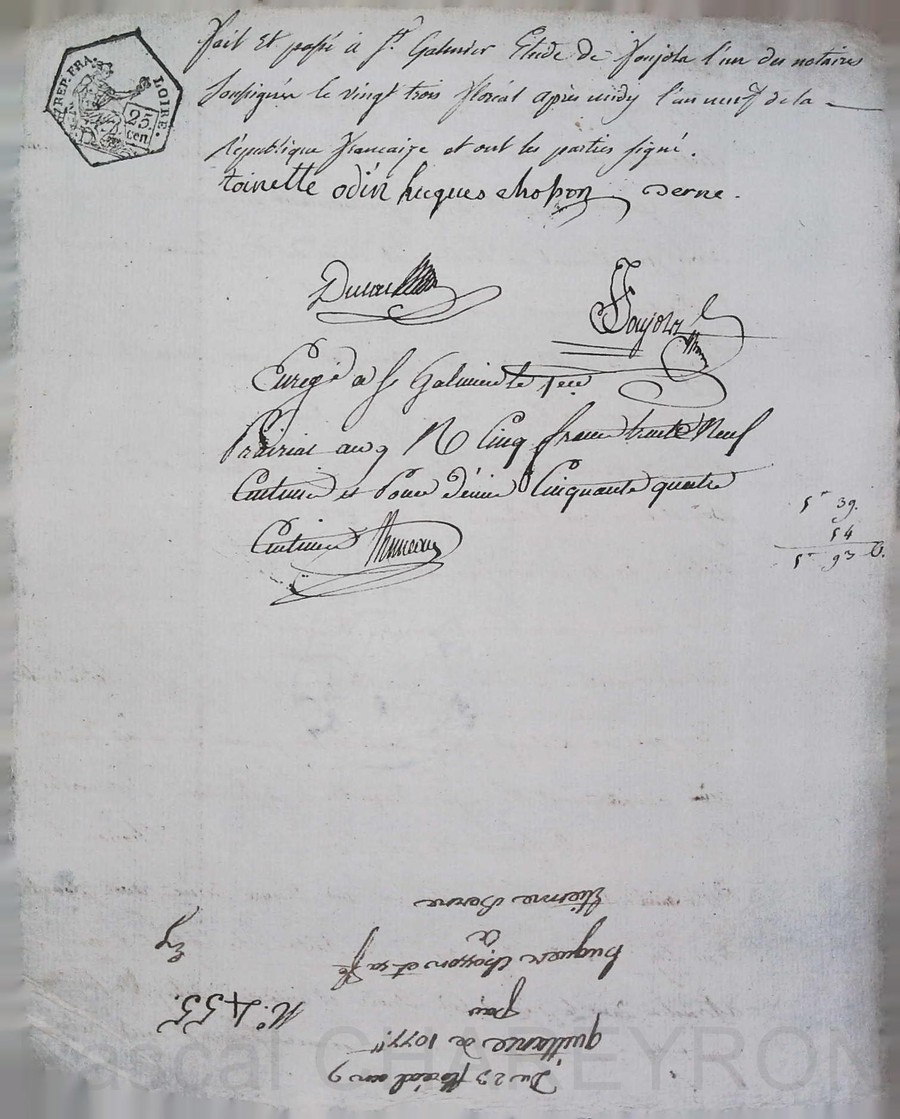 REP. FRA.
LOIRE.
25.
cen.
Fait et passé à St Galmier Etude de Foujols l'un des notaires
soussignés le vingt trois floreal après midy l'an neuf de la
République francaise et ont les parties signé.
toinette odin hugues chopon Berne.
Foujols
Enregé a St Galmier le 1er
Prairial an 9 R cinq francs trente Neuf
Centimes et Pour Décime Cinquante quatre
Centimes
5 39.
54
5 93 C.
Du 23 floréal an 9
quittance de 1077
par
hugues Chosson et sa fe
a
Etienne Berne
N° 455.
Eg
Pascal CHAREYRON